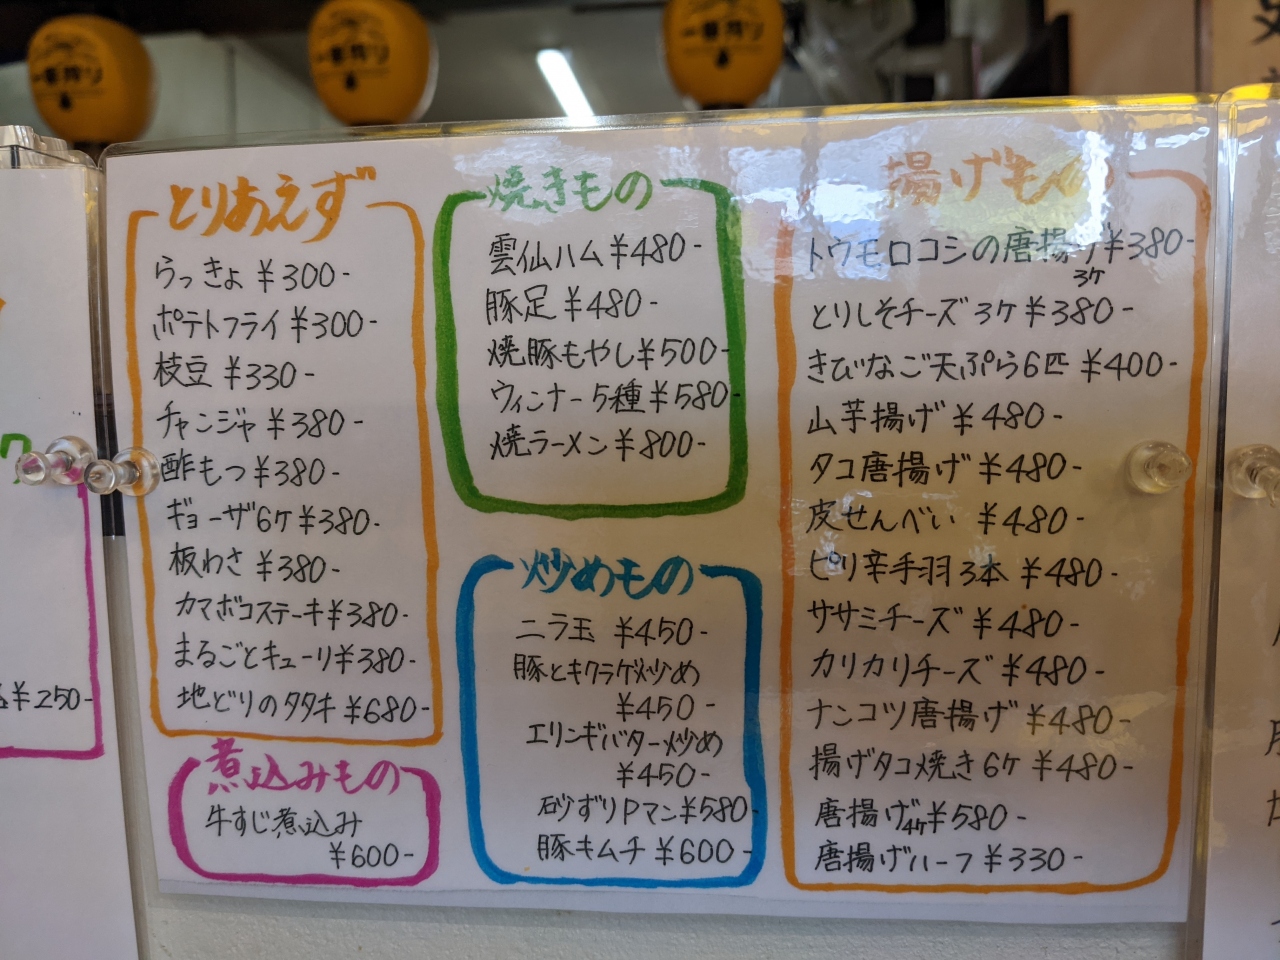 一番搾り
一番搾り
一番搾り
とりあえず
らっきょ ¥300-
ポテトフライ ¥300-
枝豆 ¥330-
チャンジャ ¥380-
酢もつ ¥380-
ギョーザ6ケ ¥380-
板わさ ¥380-
カマボコステーキ ¥380-
まるごとキューリ ¥380-
地どりのタタキ ¥680-
煮込みもの
牛すじ煮込み
¥600-
焼きもの
雲仙ハム ¥480-
豚足 ¥480-
焼豚もやし ¥500-
ウィンナー5種 ¥580-
焼ラーメン ¥800-
炒めもの
ニラ玉 ¥450-
豚とキクラゲ炒め
¥450-
エリンギバター炒め
¥450-
砂ずりPマン ¥580-
豚キムチ ¥600-
揚げもの
トウモロコシの唐揚げ ¥380-
3ケ
とりしそチーズ 3ケ ¥380-
きびなご天ぷら6匹 ¥400-
山芋揚げ ¥480-
タコ唐揚げ ¥480-
皮せんべい ¥480-
ピリ辛手羽3本 ¥480-
ササミチーズ ¥480-
カリカリチーズ ¥480-
ナンコツ唐揚げ ¥480-
揚げタコ焼き6ケ ¥480-
唐揚げ4ケ ¥580-
唐揚げハーフ ¥330-
¥250-